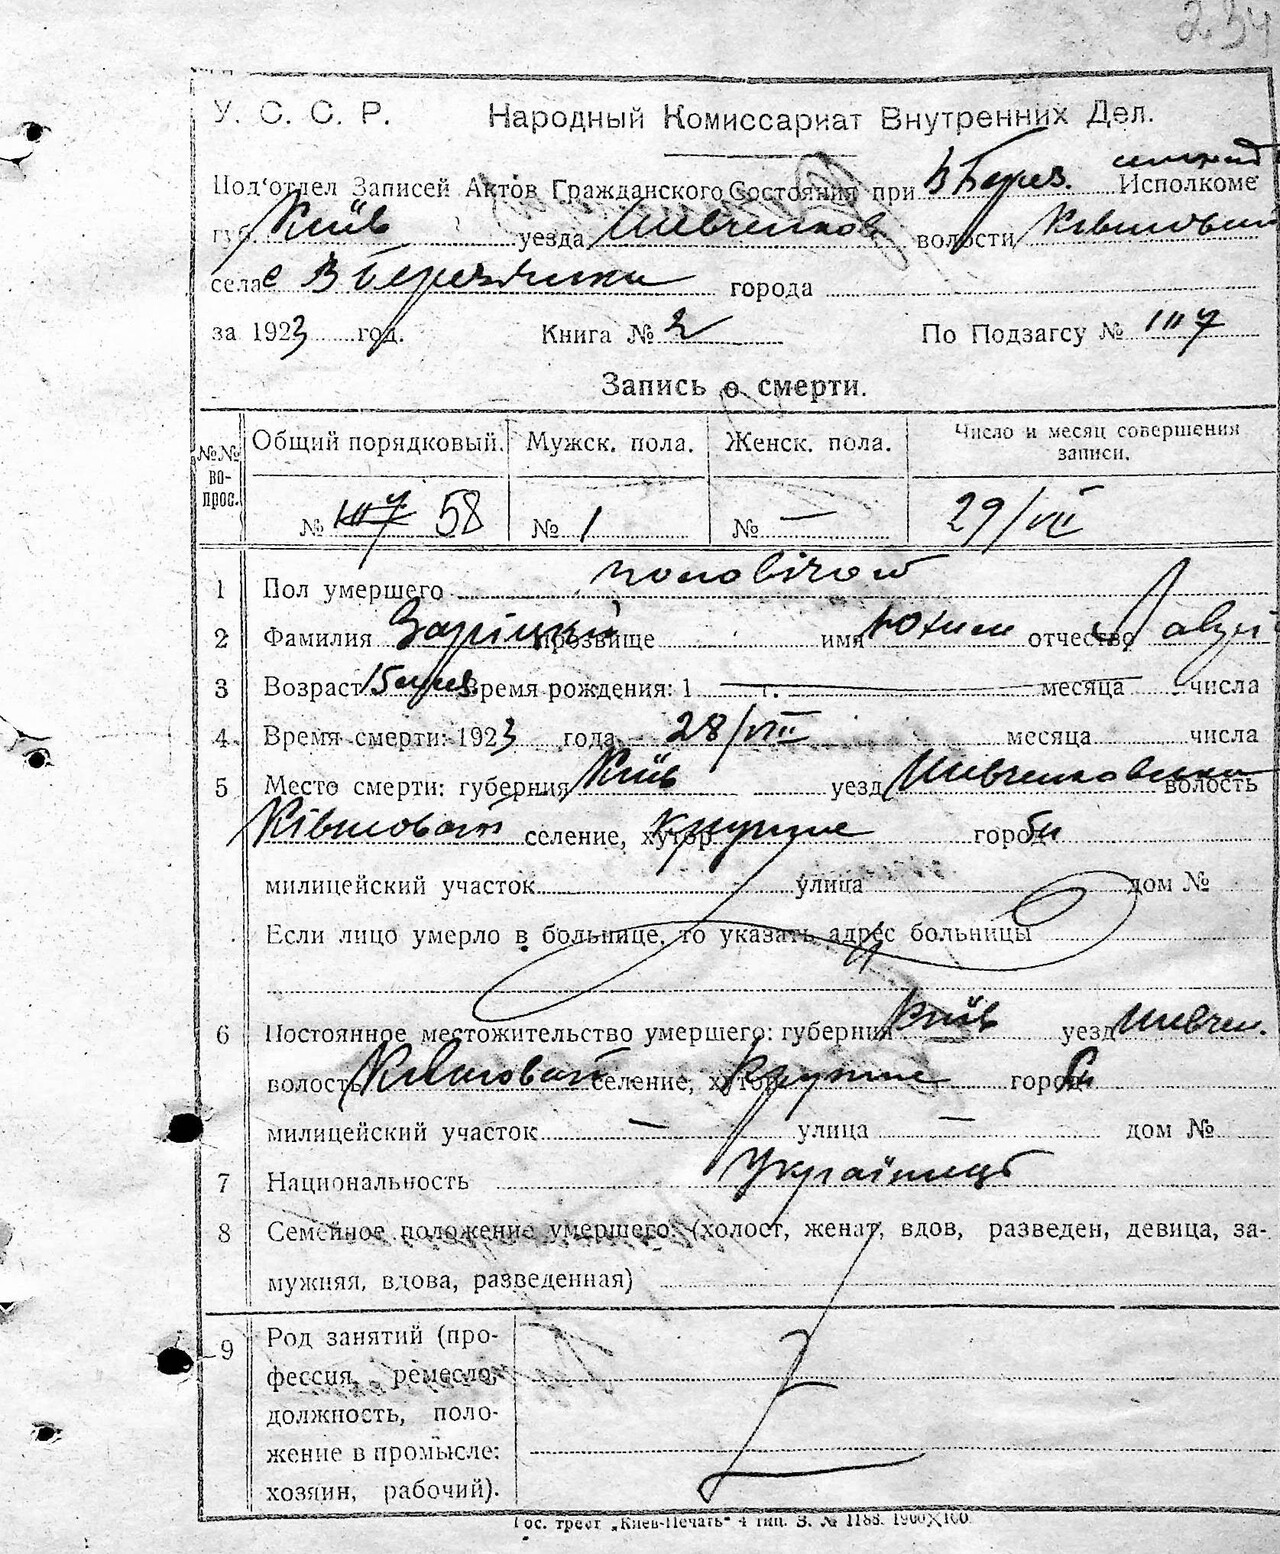 234
У. С. С. Р. Народный Комиссариат Внутренних Дел.
Под'отдел Записей Актов Гражданского Состояния при В Берез. Исполкоме
губ. Київ уезда Шевченков волости
села с В Березянки города
за 1923 год. Книга № 2 По Подзагсу №
Запись о смерти.
№№ вопрос. Общий порядковый. Мужск. пола. Женск. пола. Число и месяц совершения записи.
№ 58 № 1 № — 29/VIII
1 Пол умершего чоловічої
2 Фамилия Заріцький прозвище имя Юхим отчество
3 Возраст 15 Время рождения: 1 г. месяца числа
4 Время смерти: 1923 года 28/VIII месяца числа
5 Место смерти: губерния Київ уезд Шевченковська волость
селение, хутор город
милицейский участок улица дом №
Если лицо умерло в больнице, то указать адрес больницы
6 Постоянное местожительство умершего: губерния Київ уезд Шевчен.
волость селение, хутор город
милицейский участок — улица — дом №
7 Национальность Українець
8 Семейное положение умершего (холост, женат, вдов, разведен, девица, за-
мужняя, вдова, разведенная)
9 Род занятий (про-
фессия, ремесло,
должность, поло-
жение в промысле:
хозяин, рабочий).
Гос. трест „Киев-Печать" 4 тип. З. № 1188. 1900×100.